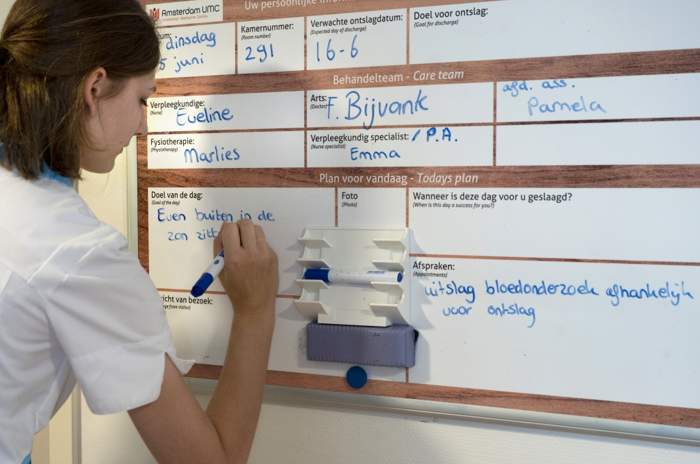 Amsterdam UMC
Uw persoonlijke
Kamernummer:
(Room number)
291
Verwachte ontslagdatum:
(Expected day of discharge)
16-6
Doel voor ontslag:
(Goal for discharge)
dinsdag
5 juni
Behandelteam - Care team
Verpleegkundige:
(Nurse)
Eveline
Arts:
(Doctor)
F. Bijvank
afd. ass.
Pamela
Fysiotherapie:
(Physiotherapy)
Marlies
Verpleegkundig specialist: / P.A.
(Nurse specialist)
Emma
Plan voor vandaag - Todays plan
Doel van de dag:
(Goal of the day)
Even buiten in de
zon zitt
Foto
(Photo)
Wanneer is deze dag voor u geslaagd?
(When is this day a success for you?)
Afspraken:
(Appointments)
uitslag bloedonderzoek afhankelijk
voor ontslag
icht van bezoek: